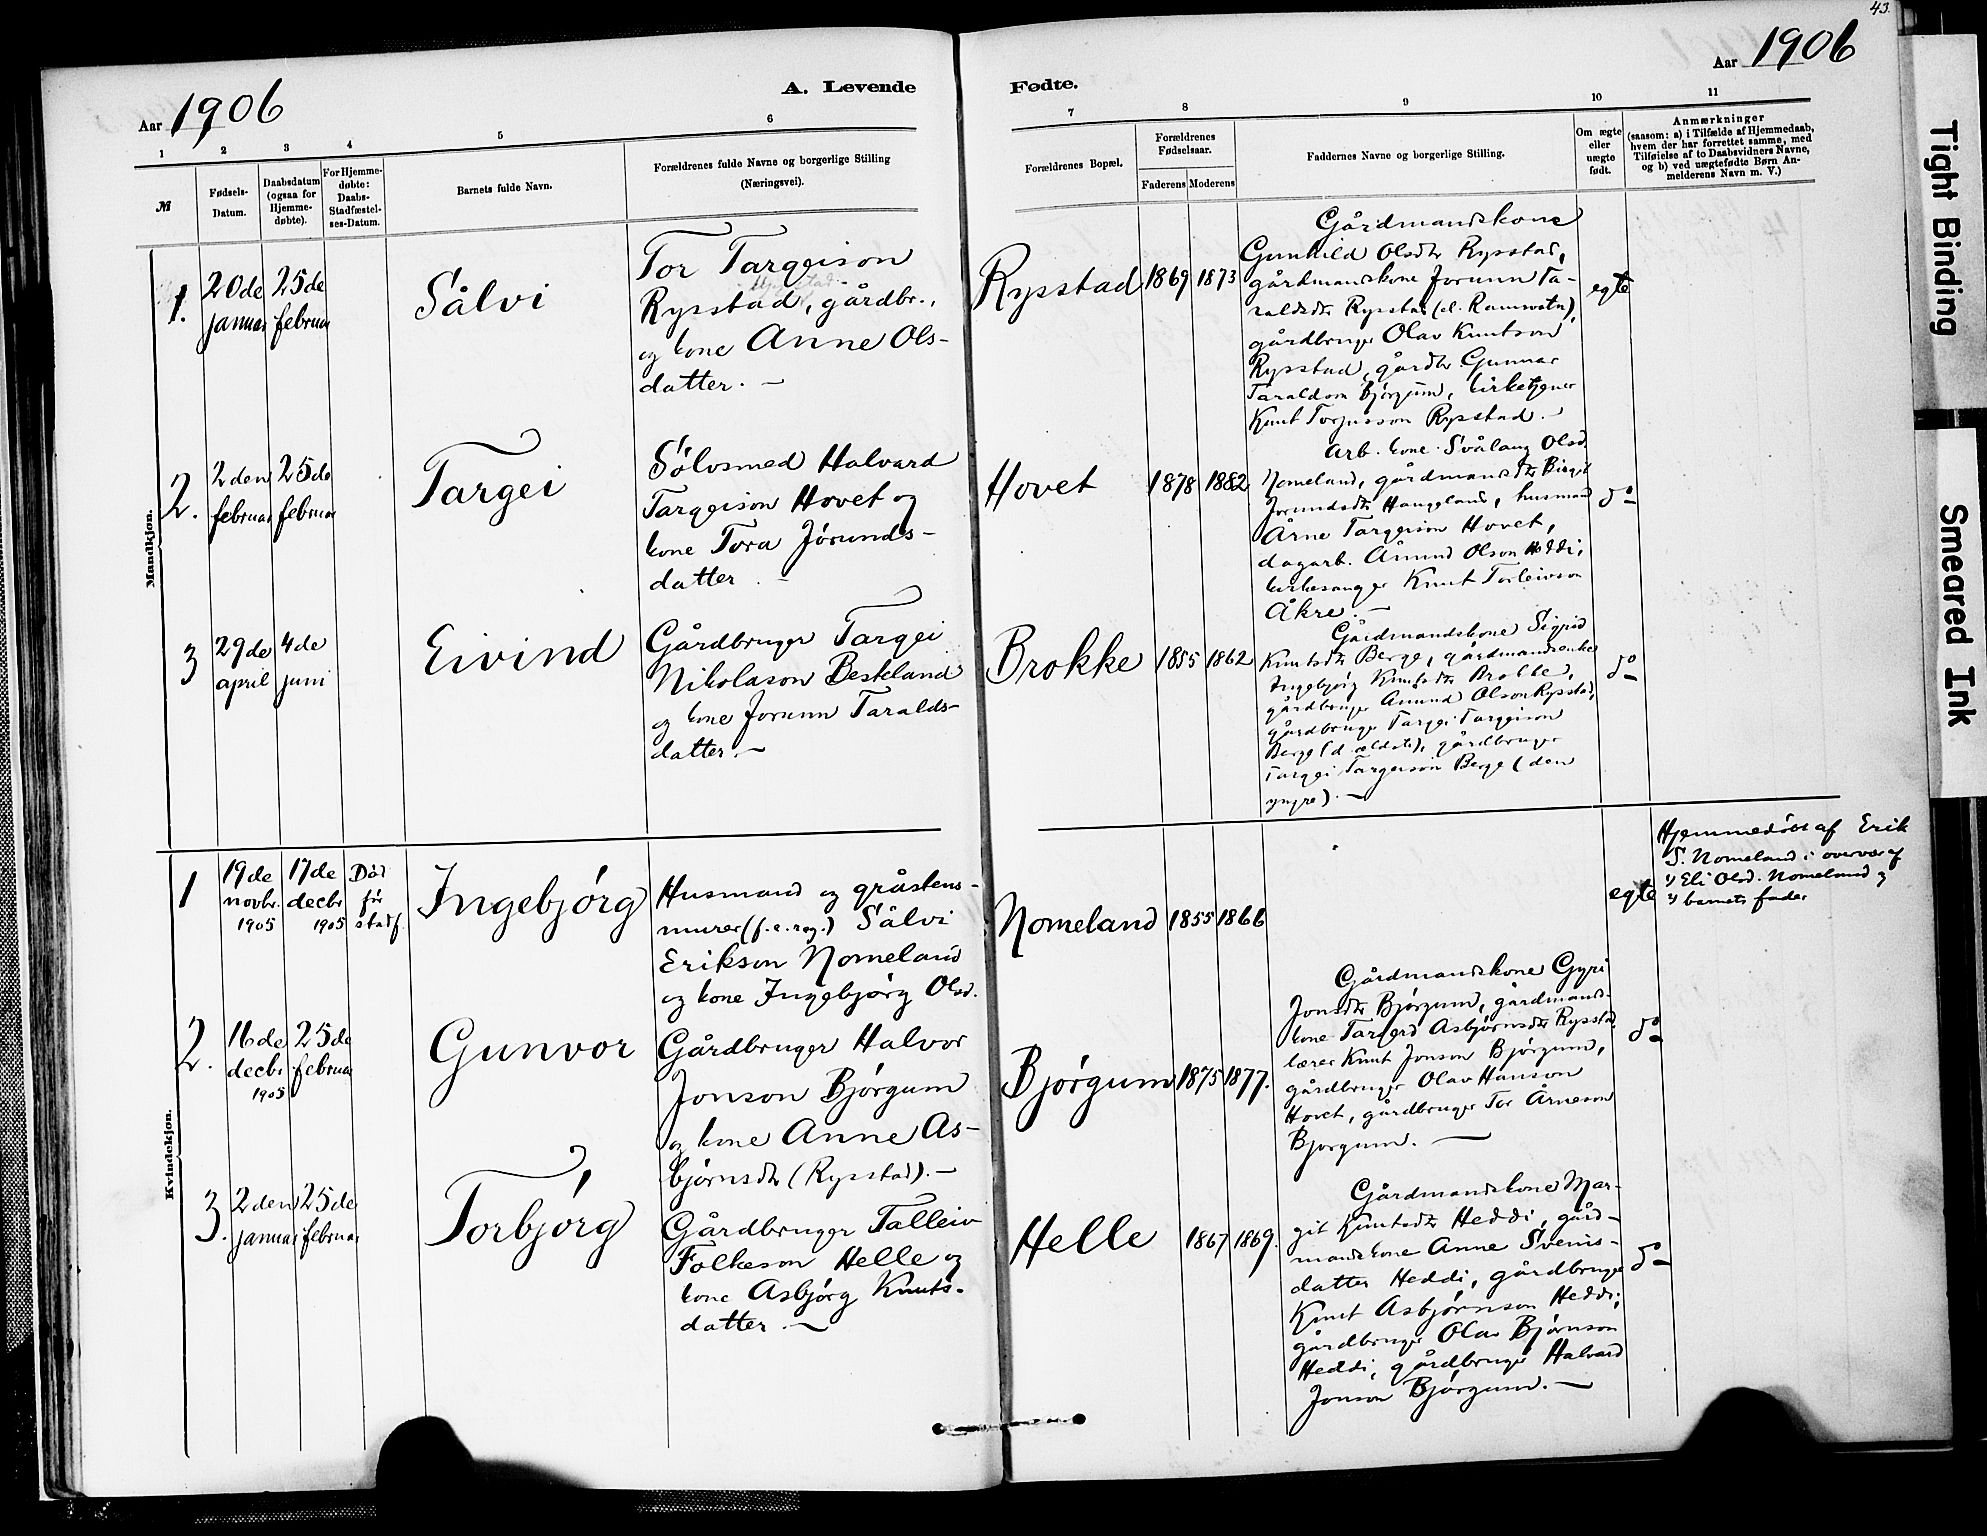 43.
Aar 1906
A. Levende
Fødte.
Aar 1906
1
2
3
4
5
6
7
8
9
10
11
№
Fødsels-
Datum.
Daabsdatum
(ogsaa for
Hjemme-
døbte).
For Hjemme-
døbte:
Daabs-
Stadfæstel-
ses-Datum.
Barnets fulde Navn.
Forældrenes fulde Navne og borgerlige Stilling
(Næringsvei).
Forældrenes Bopæl.
Forældrenes
Fødselsaar.
Faderens
Moderens
Faddernes Navne og borgerlige Stilling.
Om ægte
eller
uægte
født.
Anmærkninger
(saasom: a) i Tilfælde af Hjemmedaab,
hvem der har forrettet samme, med
Tilføielse af to Daabsvidners Navne,
og b) ved uægtefødte Børn An-
melderens Navn m. V.)
Mandkjøn.
1.
20de
januar
25de
februar
Sålvi
Tor Targeison
Rysstad, gårdbr.,
og kone Anne Ols-
datter. —
Rysstad
1869
1873
Gårdmandskone
Gunhild Olsdtr Rysstad,
gårdmandskone Jorunn Ta-
raldsdtr Rysstad
gårdbruger Olav Knutson
Rysstad, gårdbr Gunnar
Taraldson Bjørgum, kirketjener
Knut Torjusson Rysstad. —
egte
2.
2den
februar
25de
februar
Targei
Sølvsmed Halvard
Targeison Hovet og
kone Tora Jørunds-
datter. —
Hovet
1878
1882
Arb. kone Svålaug Olsd.
Nomeland, gårdmandsdtr Birgit
Jorundsdtr Haugeland, husmand
Årne Targeison Hovet,
dagarb. Åmund Olson Heddi,
kirkesanger Knut Torleivson
Åkre. —
do
3
29de
april
4de
juni
Eivind
Gårdbruger Targei
Nikolason Besteland
og kone Jorunn Taralds-
datter. —
Brokke
1855
1862
Gårdmandskone Sigrid
Knutsdtr Berge, gårdmandsenke
Ingebjørg Knutsdtr Brokke,
gårdbruger Åmund Olson Rysstad,
gårdbruger Targei Targeison
Berge (d. ældste), gårdbruger
Targei Targeison Berge (den
yngre). —
do
Kvindekjøn.
1
19de
novbr.
1905
17de
decbr
1905
Död
för
stadf.
Ingebjørg
Husmand og gråstens-
murer (f. e. reg.) Sålvi
Erikson Nomeland
og kone Ingebjørg Olsd.
Nomeland
1855
1866
egte
Hjemmedöbt af Erik
S. Nomeland i overvær af
1) Eli Olsd. Nomeland og
2) barnets fader
2.
16de
decbr
1905
25de
februar
Gunvor
Gårdbruger Halvor
Jonson Bjørgum
og kone Anne As-
bjørnsdtr (Rysstad). —
Bjørgum
1875
1877.
Gårdmandskone Gyri
Jonsdtr Bjørgum, gårdmands-
kone Targerd Asbjørnsdtr Rysstad
lærer Knut Jonson Bjørgum,
gårdbruger Olav Hanson
Hovet, gårdbruger Tor Årneson
Bjørgum. —
do
3.
2den
januar
25de
februar
Torbjørg
Gårdbruger Talleiv
Folkeson Helle og
kone Asbjørg Knuts-
datter. —
Helle
1867
1869.
Gårdmandskone Mar-
git Knutsdtr Heddi, gård-
mandskone Anne Svenis-
datter Heddi, gårdbruger
Knut Asbjørnson Heddi,
gårdbruger Olav Bjørnson
Heddi, gårdbruger Halvard
Jonson Bjørgum. —
do
Tight Binding
Smeared Ink